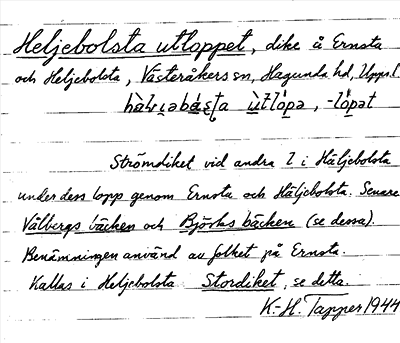 Heljebolsta utloppet, dike å Ernsta
och Heljebolsta, Västeråkers sn, Hagunda hd, Upps. l
Strömdiket vid andra l i Häljebolsta
under dess lopp genom Ernsta och Häljebolsta. Senare
Vålbergs bäcken och Björks bäcken (se dessa).
Benämningen använd av folket på Ernsta.
Kallas i Heljebolsta Stordiket, se detta.
K.-H. Tapper 1944